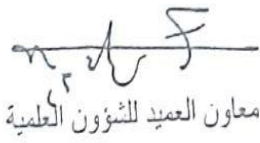 معاون العميد للشؤون العلمية